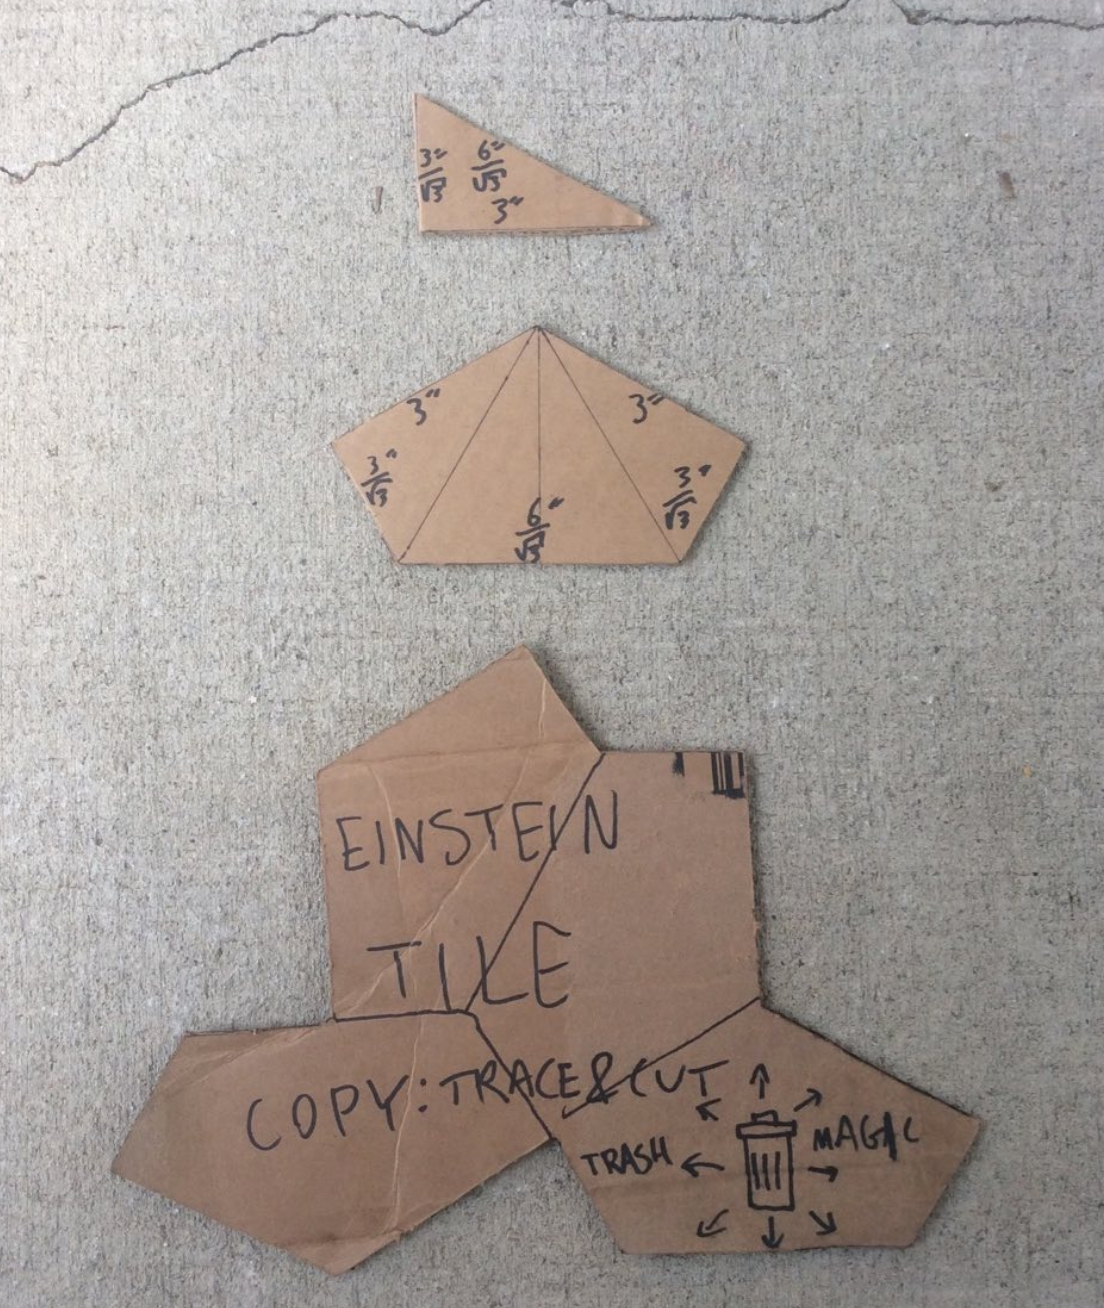 3"/√3
6"/√3
3"
3"
3"
3"/√3
3"/√3
6"/√3
EINSTEIN
TILE
COPY: TRACE & CUT
TRASH
MAGIC